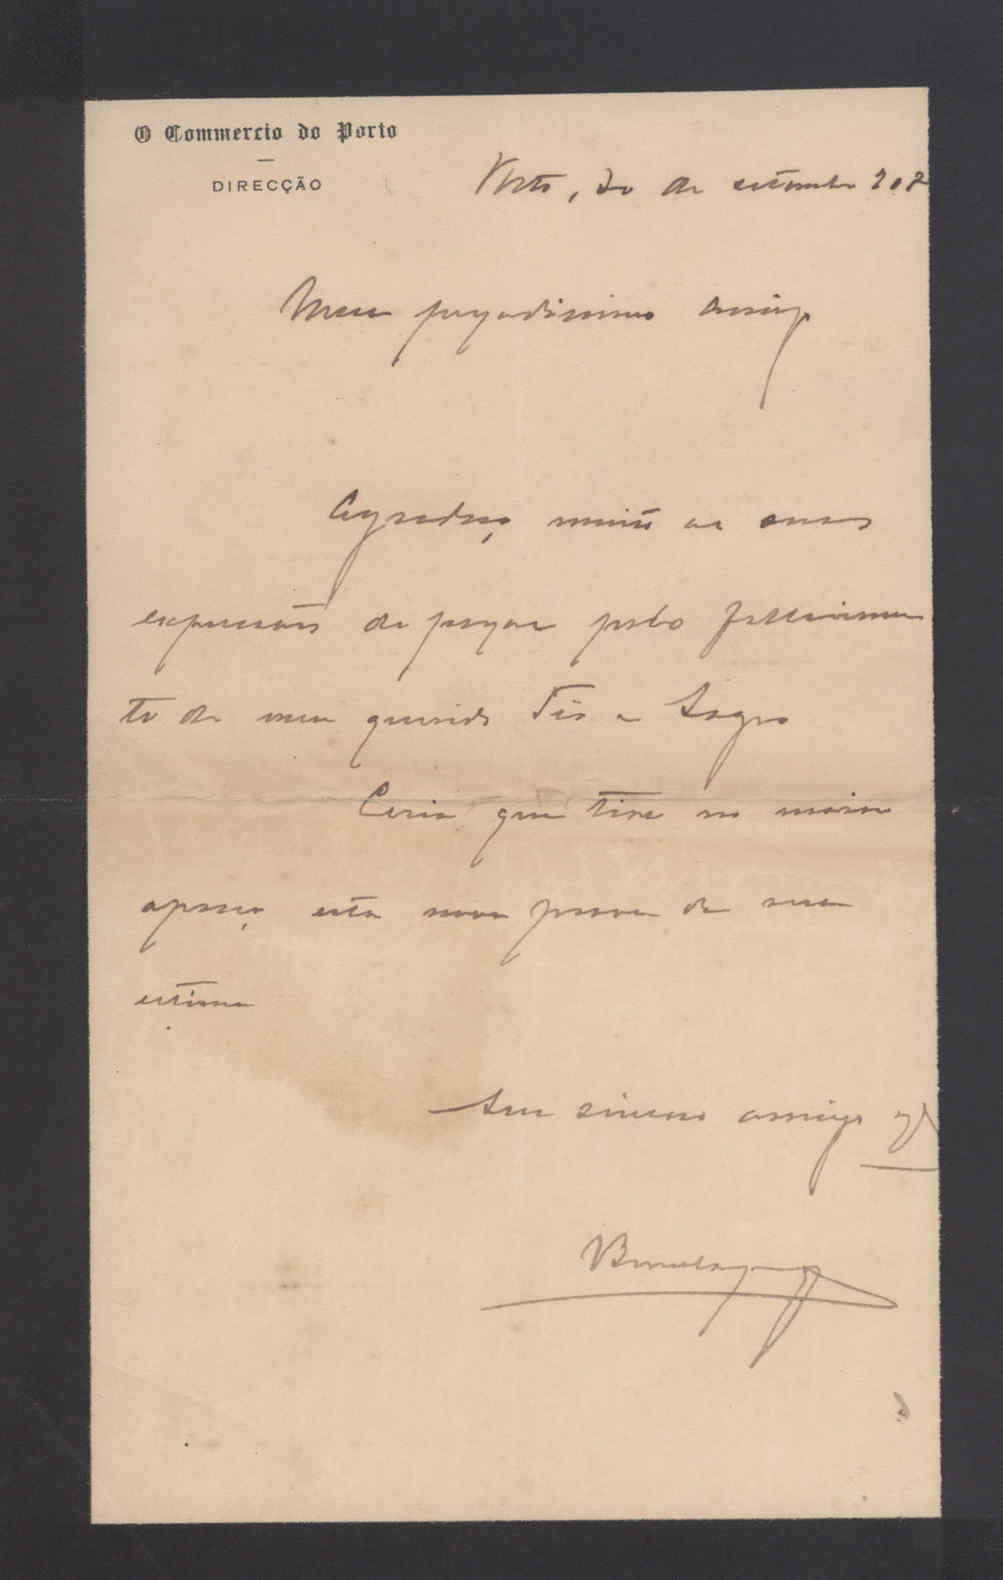 O Commercio do Porto
DIRECÇÃO
Porto, 20 de setembro
Meu presadissimo amigo
Agradeço muito as suas
expressões de pezar pelo fallecimen
to de meu querido Tio e Sogro
Creia que tive no maior
apreço esta nova prova de sua
estima
Seu sincero amigo